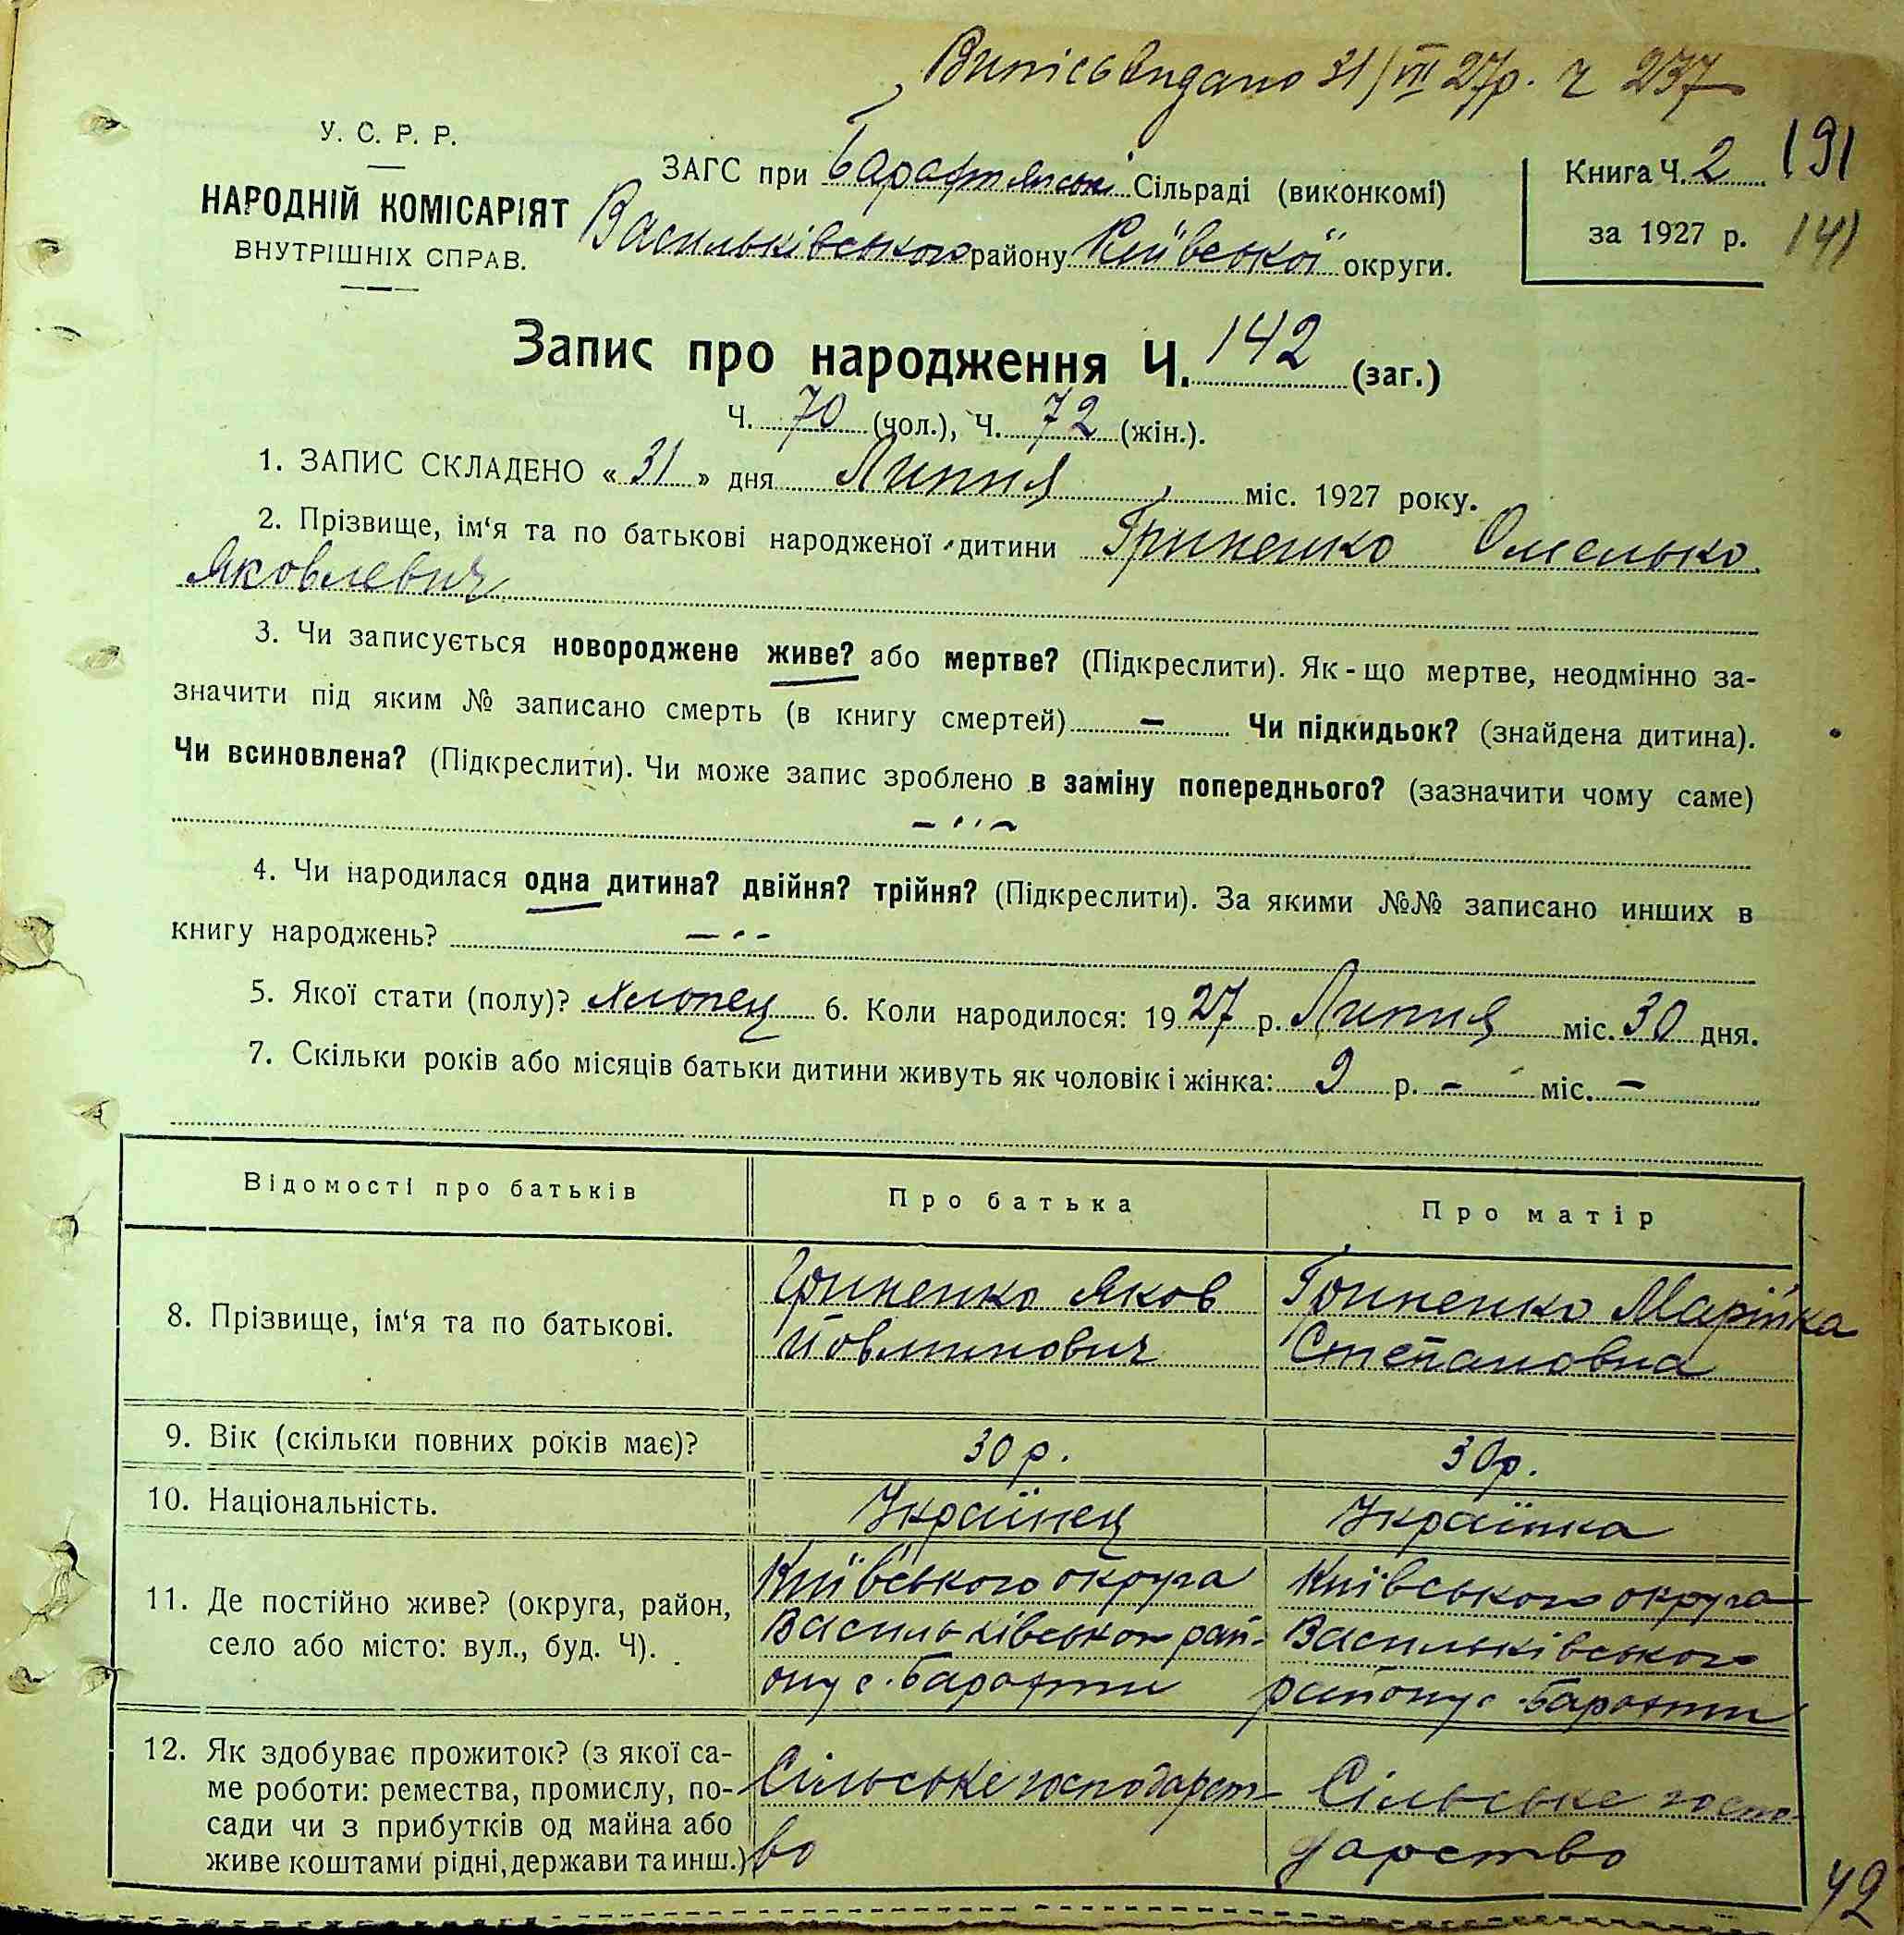 Випісь видано 31/VII 27р. ч 237
У. С. Р. Р.
НАРОДНІЙ КОМІСАРІЯТ
ВНУТРІШНІХ СПРАВ.
ЗАГС при Барахтянські Сільраді (виконкомі)
Васильківського району Київської округи.
Книга Ч. 2
за 1927 р.
191
141
Запис про народження Ч. 142 (заг.)
Ч. 70 (чол.), Ч. 72 (жін.).
1. ЗАПИС СКЛАДЕНО « 31 » дня Липня міс. 1927 року.
2. Прізвище, ім‘я та по батькові народженої дитини Гриненко Омелько
Яковлевич
3. Чи записується новороджене живе? або мертве? (Підкреслити). Як-що мертве, неодмінно за-
значити під яким № записано смерть (в книгу смертей) — Чи підкидьок? (знайдена дитина).
Чи всиновлена? (Підкреслити). Чи може запис зроблено в заміну попереднього? (зазначити чому саме)
4. Чи народилася одна дитина? двійня? трійня? (Підкреслити). За якими №№ записано инших в
книгу народжень?
5. Якої стати (полу)? Хлопец 6. Коли народилося: 1927 р. Липня міс. 30 дня.
7. Скільки років або місяців батьки дитини живуть як чоловік і жінка: 9 р. - міс. -
Відомості про батьків Про батька Про матір
8. Прізвище, ім‘я та по батькові.
Гриненко Яков
Гриненко Марійка
Степановна
9. Вік (скільки повних років має)? 30 р. 30 р.
10. Національність. Українец Українка
11. Де постійно живе? (округа, район,
село або місто: вул., буд. Ч).
Київського округа
Васильківського рай-
ону с. Барахти
Київського округа
Васильківського
району с. Барахти
12. Як здобуває прожиток? (з якої са-
ме роботи: ремества, промислу, по-
сади чи з прибутків од майна або
живе коштами рідні, держави та инш.)
Сільське господарст-
во
Сільське госпо-
дарство
42